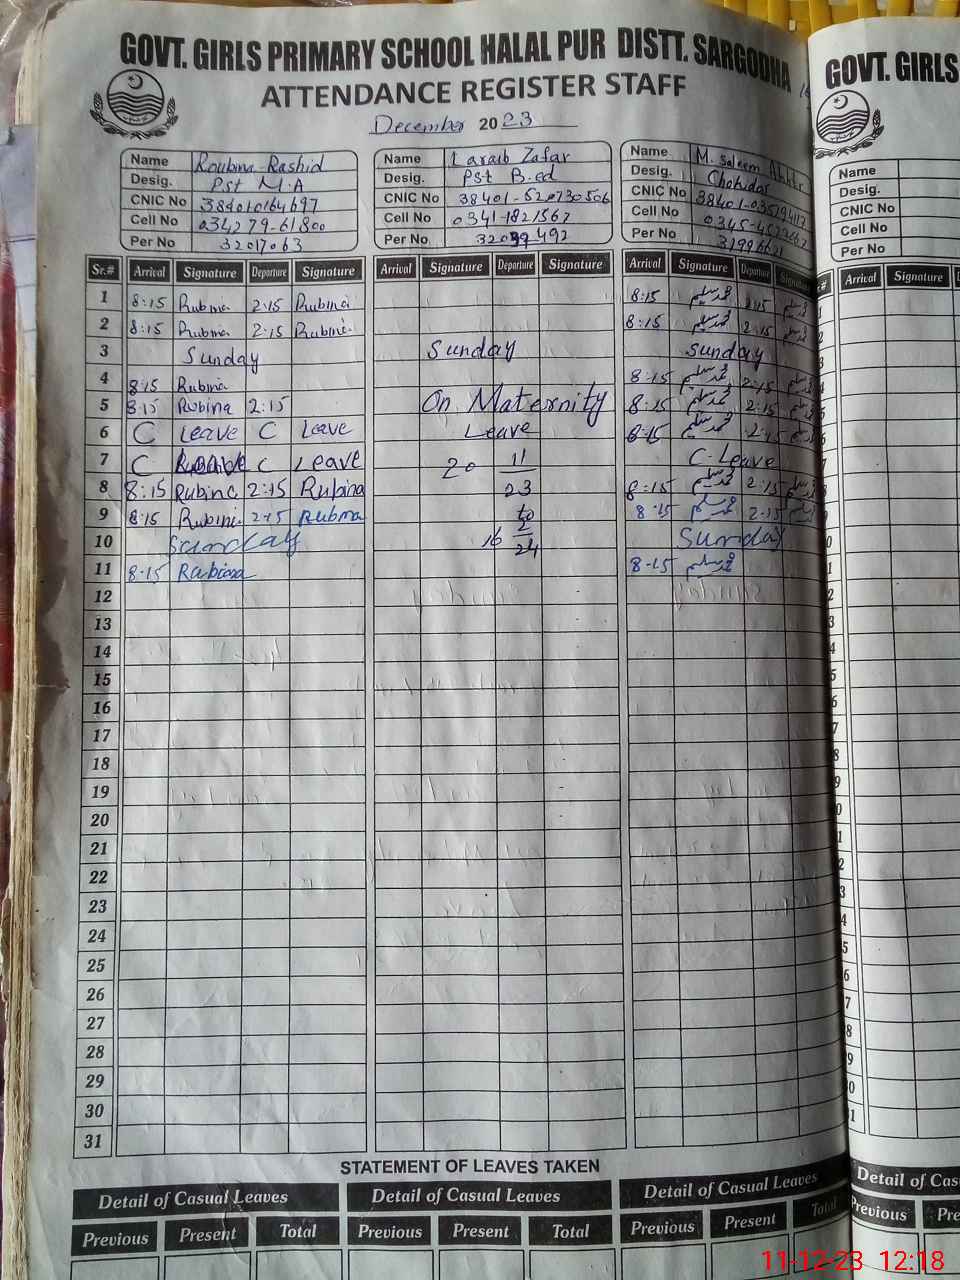 GOVT. GIRLS PRIMARY SCHOOL HALAL PUR DISTT. SARGODHA
ATTENDANCE REGISTER STAFF
December 2023
Name Roubina Rashid
Desig. Pst M.A
CNIC No
Cell No 034279-61800
Per No 32017063
Name Laraib Zafar
Desig. Pst B.ed
CNIC No 38401-520730506
Cell No 0341-1821567
Per No
Name M. Saleem Akhtr
Desig. Chokidar
CNIC No
Cell No
Per No
Sr.# Arrival Signature Departure Signature Arrival Signature Departure Signature Arrival Signature Departure Signature
1 8:15 Rubina 2:15 Rubina 8:15 محمد سلیم 2:15 محمد سلیم
2 8:15 Rubina 2:15 Rubina 8:15 محمد سلیم 2:15 محمد سلیم
3 Sunday Sunday Sunday
4 8:15 Rubina 8:15 محمد سلیم 2:15 محمد سلیم
5 8:15 Rubina 2:15 On Maternity 8:15 محمد سلیم 2:15 محمد سلیم
6 C Leave C Leave Leave 8:15 محمد سلیم 2:15 محمد سلیم
7 C Leave C Leave 20 11 C-Leave
8 8:15 Rubina 2:15 Rubina 23 8:15 محمد سلیم 2:15 محمد سلیم
9 8:15 Rubina 2:15 Rubina to 8:15 محمد سلیم 2:15 محمد سلیم
10 Sunday 16 2 24 Sunday
11 8:15 Rubina 8:15 محمد سلیم
12
13
14
15
16
17
18
19
20
21
22
23
24
25
26
27
28
29
30
31
STATEMENT OF LEAVES TAKEN
Detail of Casual Leaves Detail of Casual Leaves Detail of Casual Leaves
Previous Present Total Previous Present Total Previous Present Total
GOVT. GIRLS
Name
Desig.
CNIC No
Cell No
Per No
Arrival Signature
Detail of Cas
Previous Pre
11-12-23 12:18